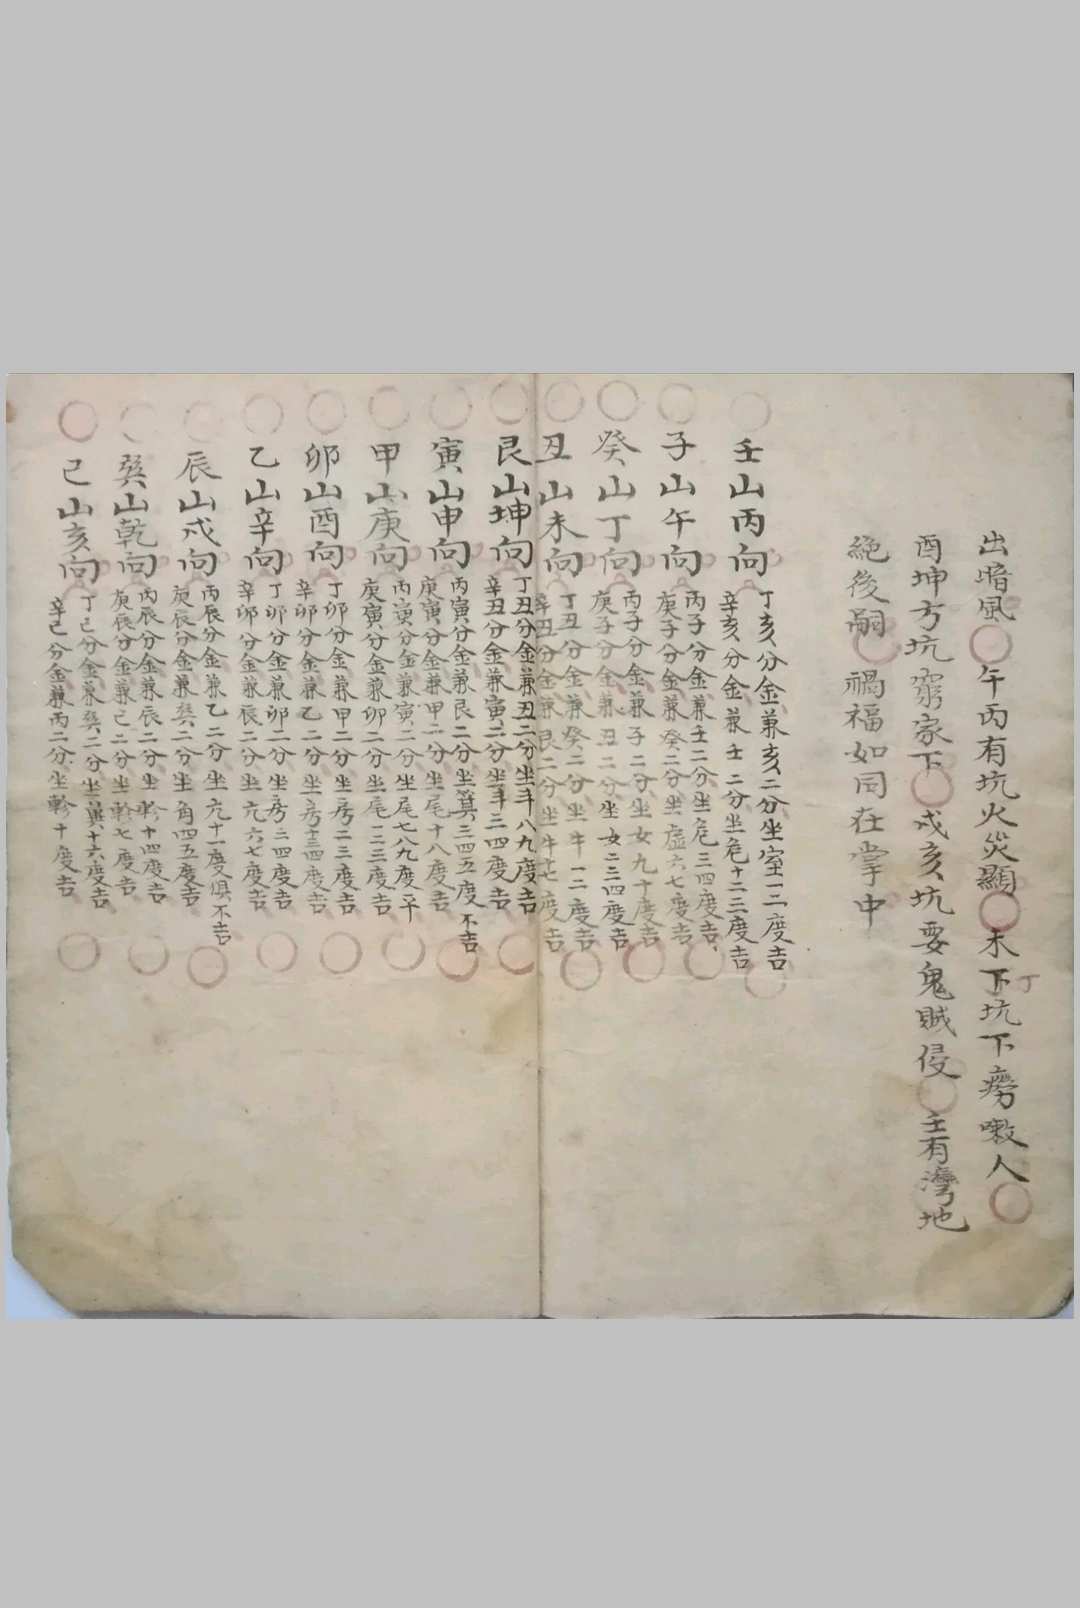 出暗風 午丙有坑火災顯 未下坑下癆嗽人
丁
酉坤方坑窮家下 戌亥坑要鬼賊侵 壬有灣地
絕後嗣 禍福如同在掌中
壬山丙向
丁亥分金兼亥二分坐室一二度吉
辛亥分金兼壬二分坐危十二三度吉
子山午向
丙子分金兼壬二分坐危三四度吉
庚子分金兼癸二分坐虛六七度吉
癸山丁向
丙子分金兼子二分坐女九十度吉
庚子分金兼丑二分坐女二三四度吉
丑山未向
丁丑分金兼癸二分坐牛一二度吉
辛丑分金兼艮二分坐牛七度吉
艮山坤向
丁丑分金兼丑二分坐斗八九度吉
辛丑分金兼寅二分坐斗三四度吉
寅山申向
丙寅分金兼艮二分坐箕三四五度不吉
庚寅分金兼甲二分坐尾十八度吉
甲山庚向
丙寅分金兼寅二分坐尾七八九度平
庚寅分金兼卯二分坐尾二三度吉
卯山酉向
丁卯分金兼甲二分坐房二三度吉
辛卯分金兼乙二分坐房三四度吉
乙山辛向
丁卯分金兼卯二分坐房三四度吉
辛卯分金兼辰二分坐亢六七度吉
辰山戌向
丙辰分金兼乙二分坐亢十一度俱不吉
庚辰分金兼巽二分坐角四五度吉
巽山乾向
丙辰分金兼辰二分坐軫十四度吉
庚辰分金兼巳二分坐軫七度吉
巳山亥向
丁巳分金兼巽二分坐翼十六度吉
辛巳分金兼丙二分坐軫十度吉